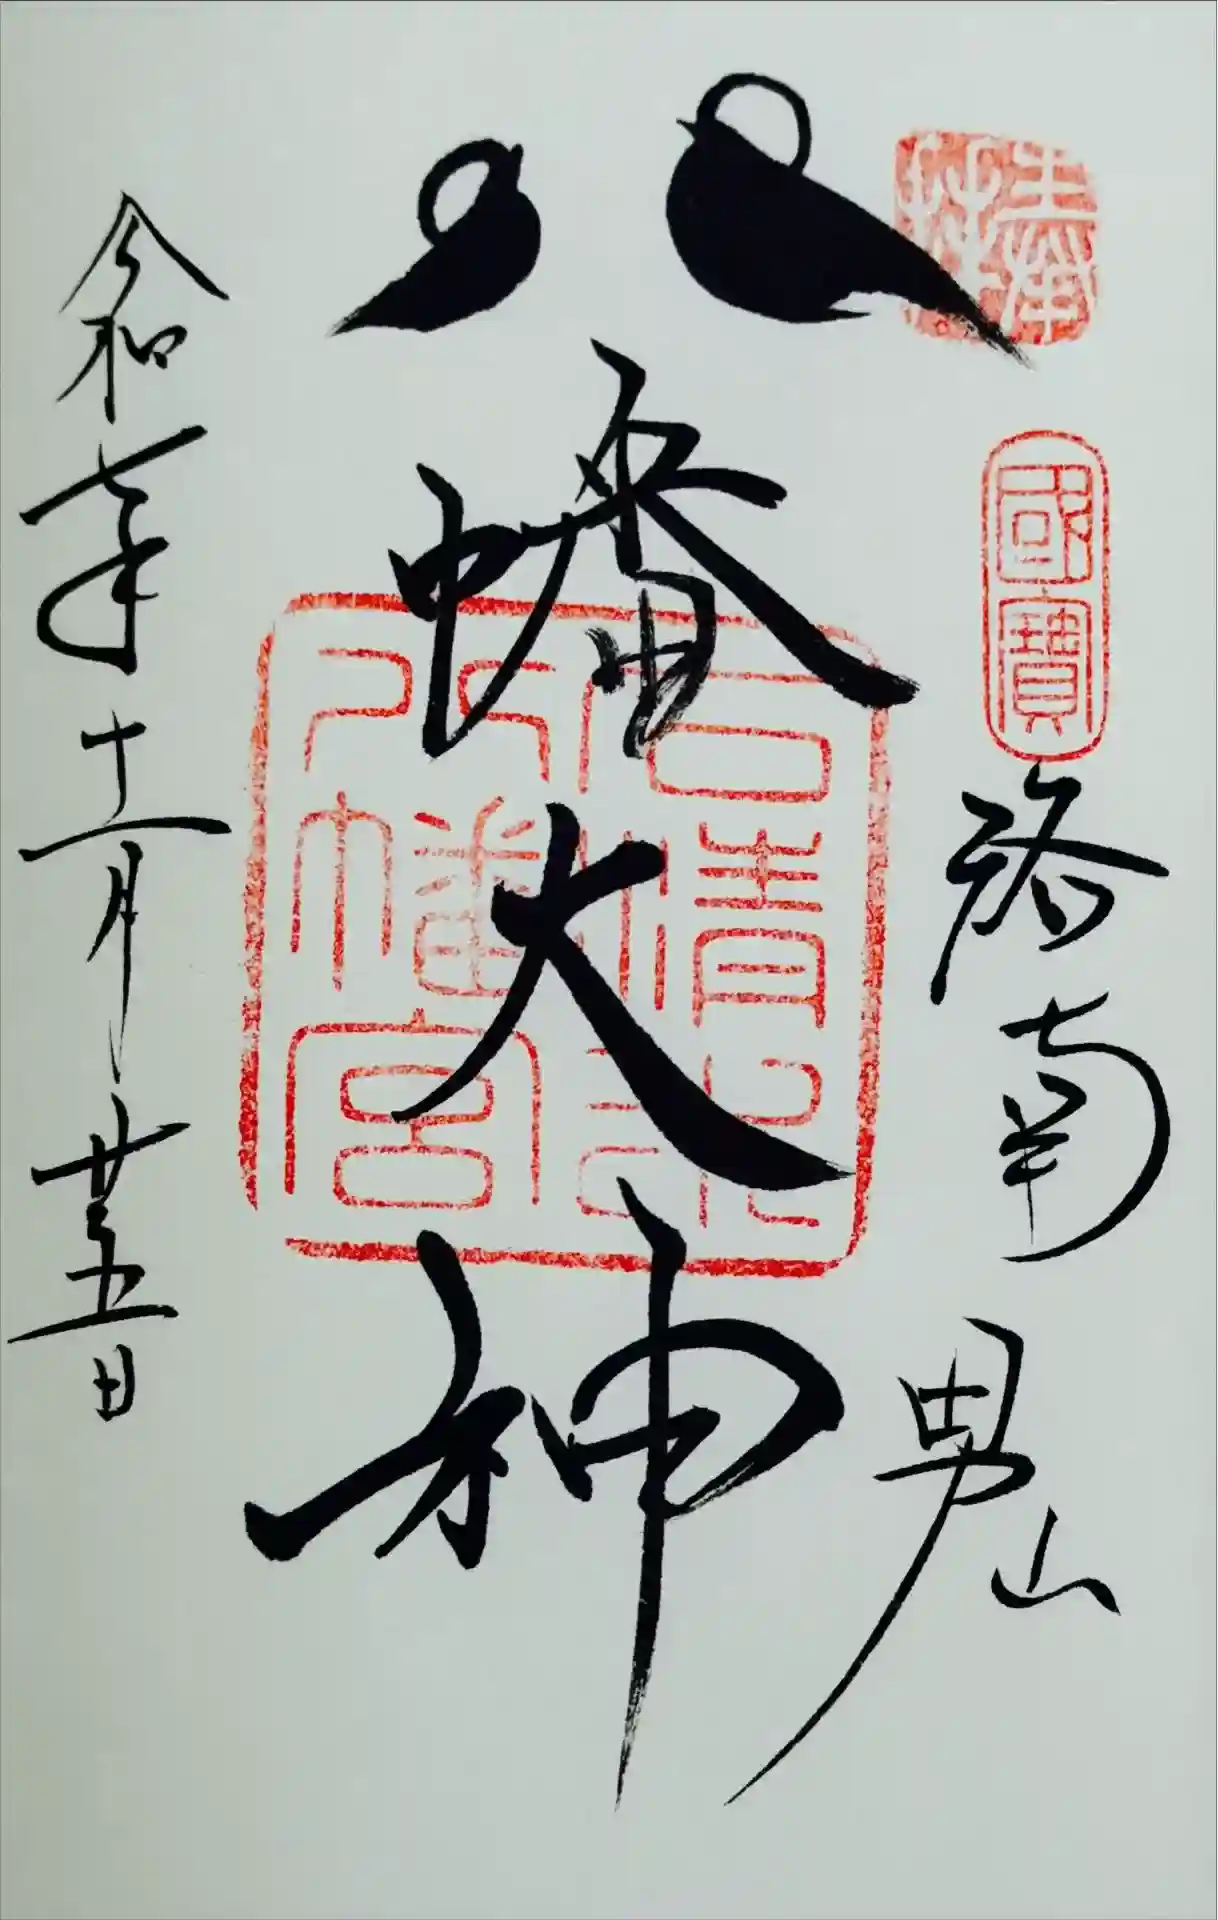 奉拝
國寶
洛南 男山
八幡大神
石清水
八幡宮
令和七年十一月廿五日